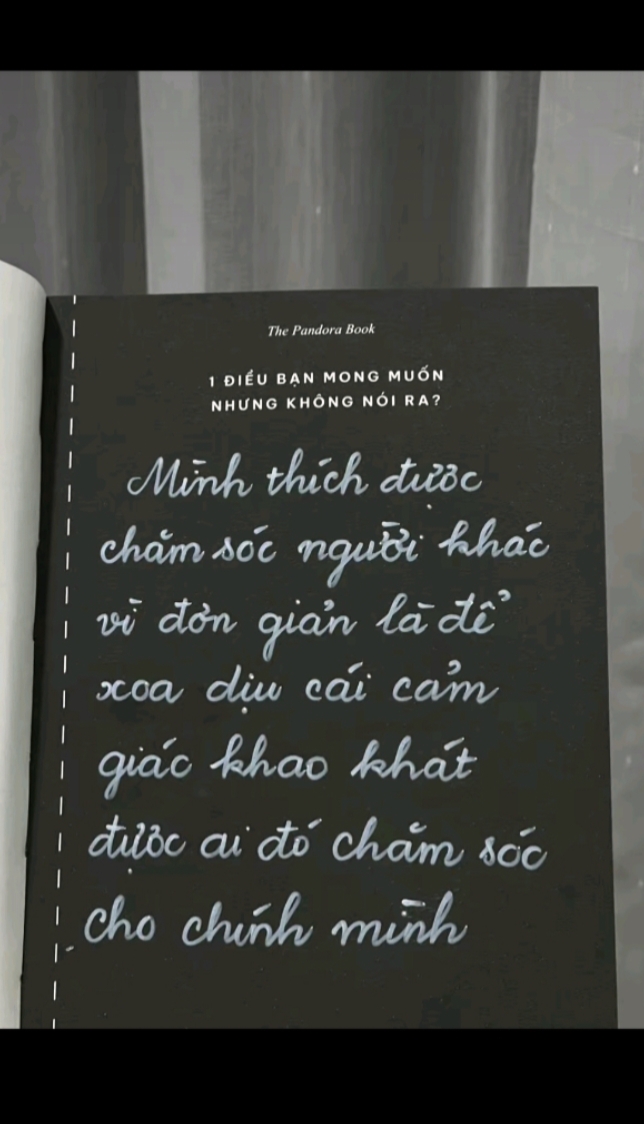 The Pandora Book
1 ĐIỀU BẠN MONG MUỐN
NHƯNG KHÔNG NÓI RA?
Mình thích được
chăm sóc người khác
vì đơn giản là để
xoa dịu cái cảm
giác khao khát
được ai đó chăm sóc
cho chính mình